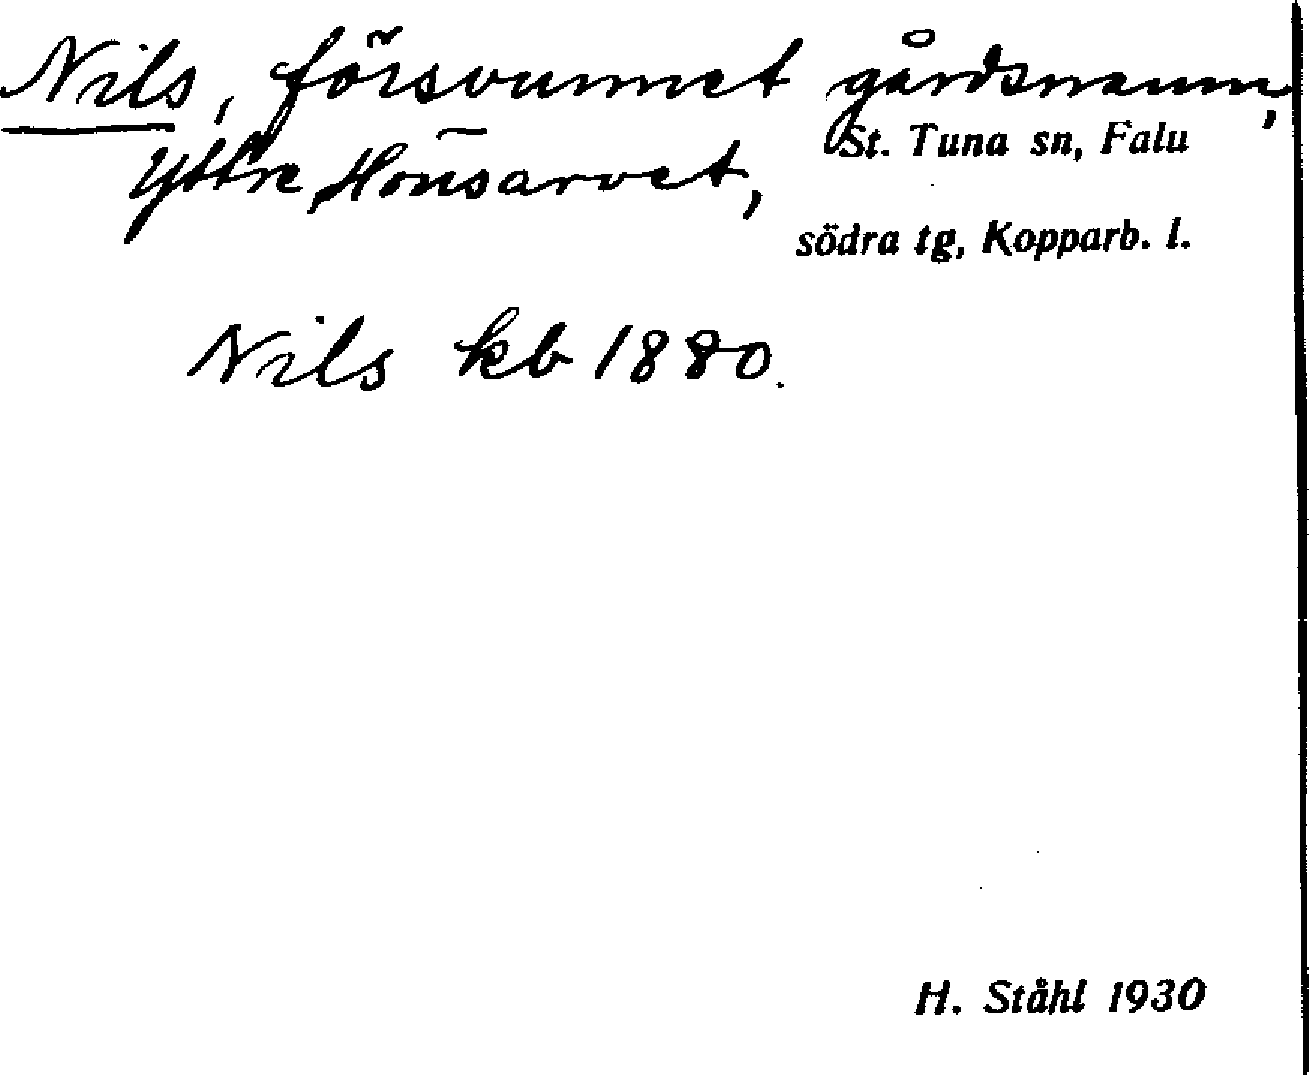 Nils, försvunnet gårdsnamn,
Yttre Hönsarvet,
St. Tuna sn, Falu
södra tg, Kopparb. l.
Nils kb 1880.
H. Ståhl 1930